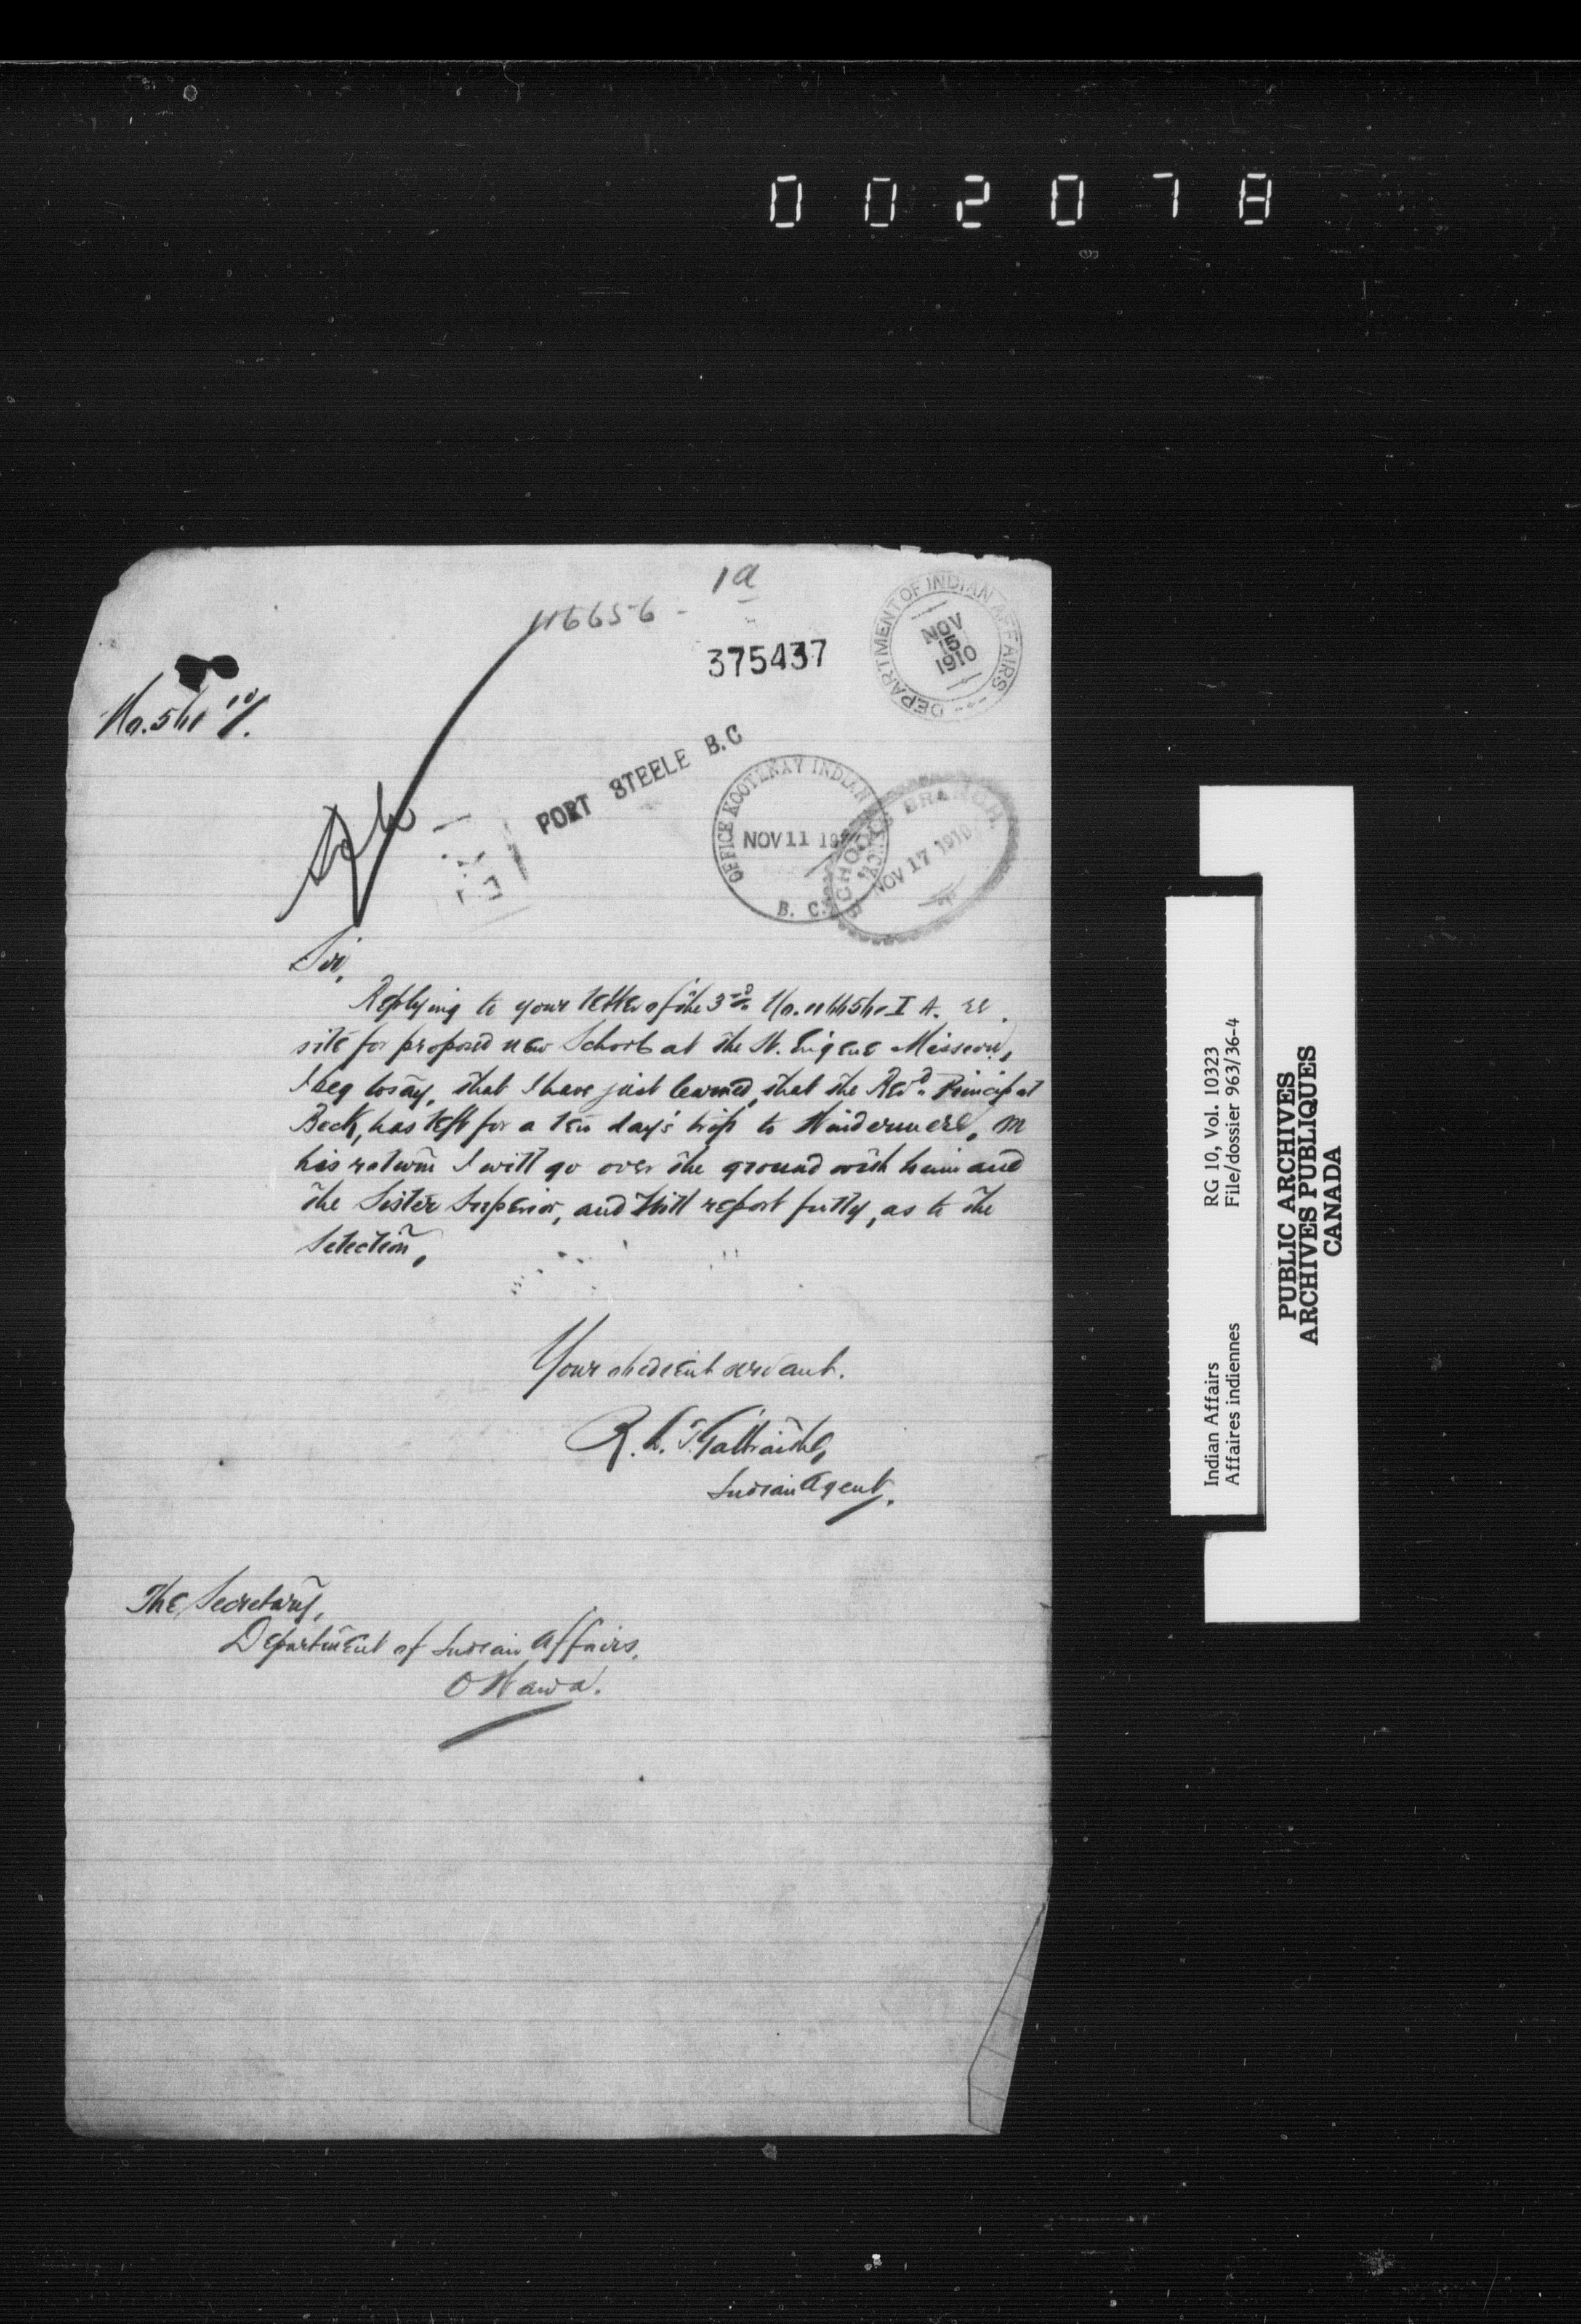 002078
1a
116656-
375437
DEPARTMENT OF INDIAN AFFAIRS
NOV
15
1910
PORT STEELE B.C
OFFICE KOOTENAY INDIAN AGENCY,
NOV 11 19
B. C.
SCHOOLS BRANCH.
NOV 17 1910
Sir,
Replying to your letter of the 3rd No. 116656-1 A. re.
site for proposed new School at the St. Eugene Mission,
I beg to say, that I have just learned, that the Revd. Principal
Beck, has left for a ten day's trip to Windermere, on
his return I will go over the ground with him and
the Sister Superior, and will report fully, as to the
selection,
Your obedient servant.
R. L. T. Galbraith,
Indian Agent.
The Secretary,
Department of Indian Affairs,
Ottawa.
Indian Affairs RG 10, Vol. 10323
Affaires indiennes File/dossier 963/36-4
PUBLIC ARCHIVES
ARCHIVES PUBLIQUES
CANADA